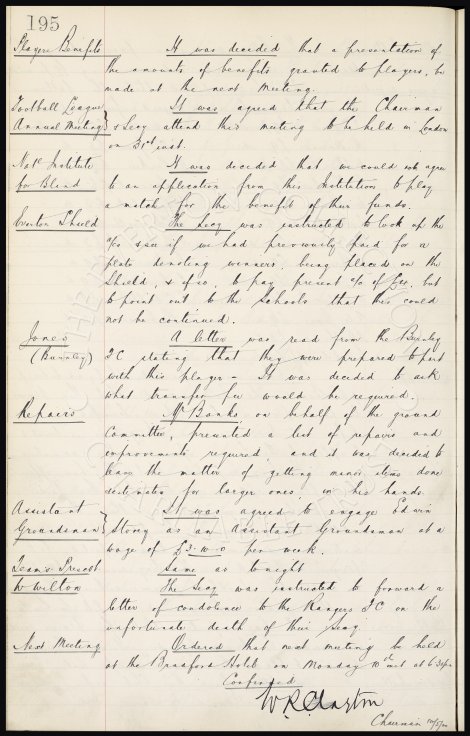 195
Players Benefits
It was decided that a presentation of
the amounts of benefits granted to players, be
made at the next meeting.
Football League
Annual Meeting
It was agreed that the Chairman
& Secy attend this meeting to be held in London
on 31st inst.
Natl Institute
for Blind
It was decided that we could not agree
to an application from this Institution to play
a match for the benefit of their funds.
Everton Shield
The Secy was instructed to look up the
a/cs & see if we had previously paid for a
plate denoting winners, being placed on the
Shield, & if so, to pay present a/c of but
to point out to the Schools that this could
not be continued.
Jones
(Burnley)
A letter was read from the Burnley
F C stating that they were prepared to part
with this player - It was decided to ask
what transfer fee would be required.
Repairs
Mr Banks on behalf of the ground
Committee, presented a list of repairs and
improvements required, and it was decided to
leave the matter of getting minor items done
estimates for larger ones, in his hands.
Assistant
Groundsman
It was agreed to engage Edwin
Storey as an Assistant Groundsman at a
wage of £3-10-0 per week.
Team v Prescot
Same as tonight
W Wilton
The Secy was instructed to forward a
letter of condolence to the Rangers F C on the
unfortunate death of their Secy
Next Meeting
Ordered that next meeting be held
at the Bradford Hotel on Monday 10th inst at 6.30pm
Confirmed
W. R. Clayton
Chairman